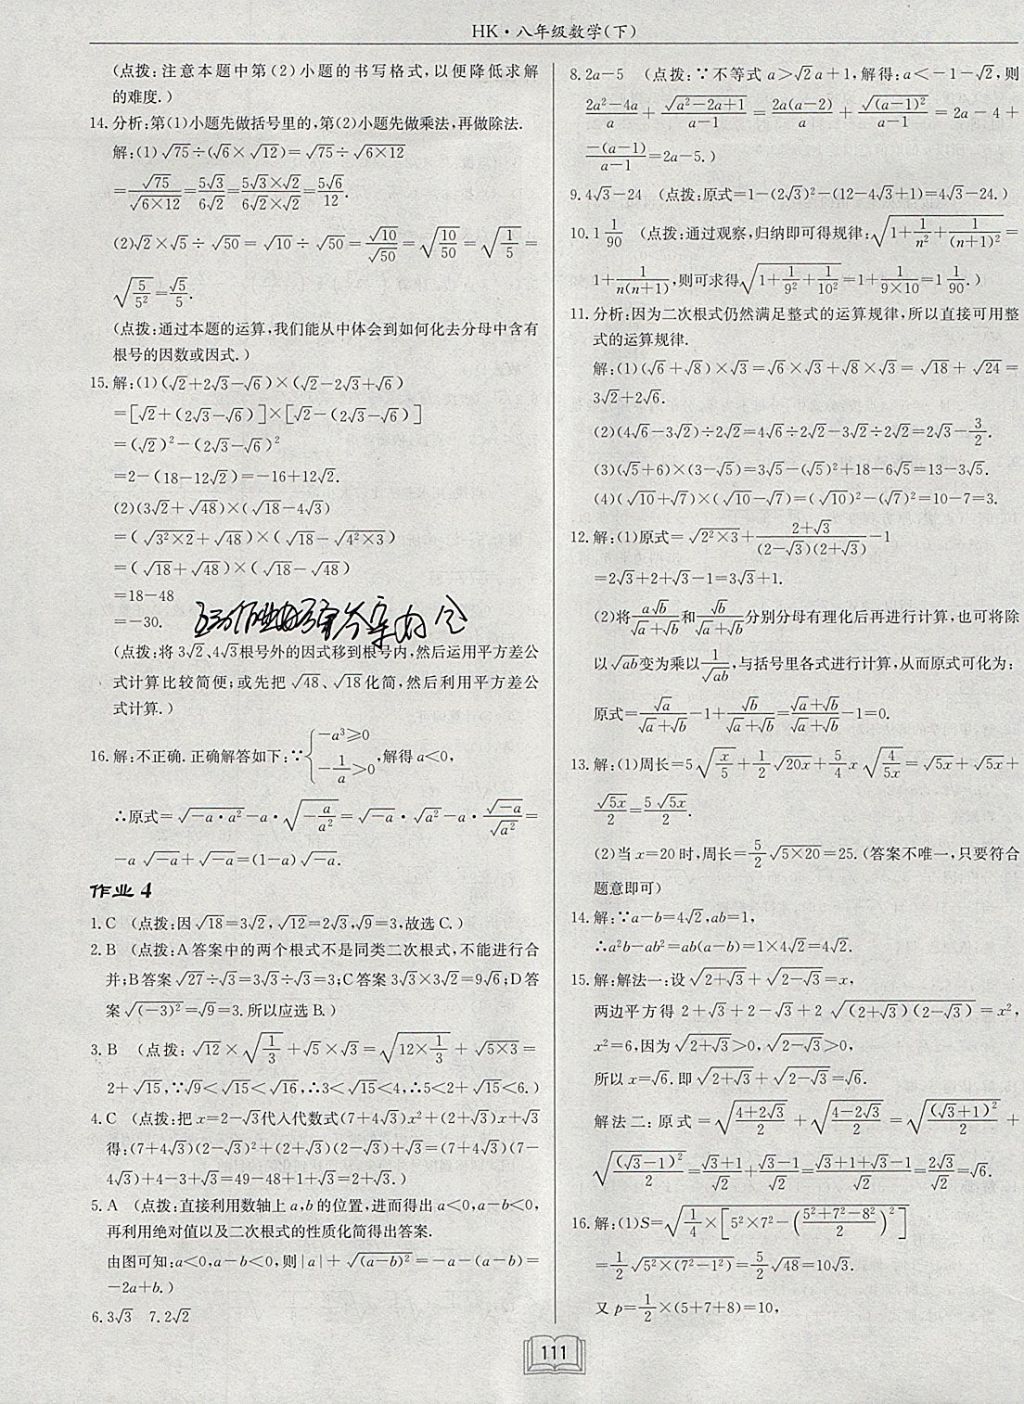 HK·八年级数学(下)
(点拨:注意本题中第(2)小题的书写格式,以便降低求解
的难度.)
14.分析:第(1)小题先做括号里的,第(2)小题先做乘法,再做除法.
解:(1)√75÷(√6×√12)=√75÷√(6×12)
=√75/√(6×12)=5√3/(6√2)=(5√3×√2)/(6√2×√2)=5√6/12.
(2)√2×√5÷√50=√10÷√50=√10/√50=√(10/50)=√(1/5)=
√(5/5²)=√5/5.
(点拨:通过本题的运算,我们能从中体会到如何化去分母中含有
根号的因数或因式.)
15.解:(1)(√2+2√3-√6)×(√2-2√3+√6)
=[√2+(2√3-√6)]×[√2-(2√3-√6)]
=(√2)²-(2√3-√6)²
=2-(18-12√2)=-16+12√2.
(2)(3√2+√48)×(√18-4√3)
=(√(3²×2)+√48)×(√18-√(4²×3))
=(√18+√48)×(√18-√48)
=18-48
=-30.
(点拨:将3√2、4√3根号外的因式移到根号内,然后运用平方差公
式计算比较简便;或先把√48、√18化简,然后利用平方差公
式计算.)
16.解:不正确.正确解答如下:∵{-a³≥0, -1/a>0,解得a<0,
∴原式=√(-a·a²)-a·√(-a/a²)=√(-a)·√(a²)-a·√(-a)/√(a²)=
-a√(-a)+√(-a)=(1-a)√(-a).
作业4
1.C (点拨:因√18=3√2,√12=2√3,√9=3,故选C.)
2.B (点拨:A答案中的两个根式不是同类二次根式,不能进行合
并;B答案√27÷√3=3√3÷√3=3;C答案3√3×3√2=9√6;D答
案√(-3)²=√9=3.所以应选B.)
3.B (点拨:√12×√(1/3)+√5×√3=√(12×1/3)+√(5×3)=
2+√15,∵√9<√15<√16,∴3<√15<4,∴5<2+√15<6.)
4.C (点拨:把x=2-√3代入代数式(7+4√3)x²+(2+√3)x+√3
得:(7+4√3)(2-√3)²+(2+√3)(2-√3)+√3=(7+4√3)(7-
4√3)+4-3+√3=49-48+1+√3=2+√3.)
5.A (点拨:直接利用数轴上a,b的位置,进而得出a<0,a-b<0,
再利用绝对值以及二次根式的性质化简得出答案.
由图可知:a<0,a-b<0,则|a|+√(a-b)²=-a-(a-b)=
-2a+b.)
6.3√3 7.2√2
8.2a-5 (点拨:∵不等式a>√2a+1,解得:a<-1-√2,则
(2a²-4a)/a+√(a²-2a+1)/(a-1)=2a(a-2)/a+√(a-1)²/(a-1)=2a-4+
-(a-1)/(a-1)=2a-5.)
9.4√3-24 (点拨:原式=1-(2√3)²-(12-4√3+1)=4√3-24.)
10.1 1/90 (点拨:通过观察,归纳即可得规律:√(1+1/n²+1/(n+1)²)=
1+1/(n(n+1)),则可求得√(1+1/9²+1/10²)=1+1/(9×10)=1 1/90.)
11.分析:因为二次根式仍然满足整式的运算规律,所以直接可用整
式的运算规律.
解:(1)(√6+√8)×√3=√6×√3+√8×√3=√18+√24=
3√2+2√6.
(2)(4√6-3√2)÷2√2=4√6÷2√2-3√2÷2√2=2√3-3/2.
(3)(√5+6)×(3-√5)=3√5-(√5)²+18-6√5=13-3√5.
(4)(√10+√7)×(√10-√7)=(√10)²-(√7)²=10-7=3.
12.解:(1)原式=√(2²×3)+(2+√3)/((2-√3)(2+√3))-1
=2√3+2+√3-1=3√3+1.
(2)将a√b/(√a+√b)和√b/(√a+√b)分别分母有理化后再进行计算,也可将除
以√ab变为乘以1/√ab,与括号里各式进行计算,从而原式可化为:
原式=√a/(√a+√b)-1+√b/(√a+√b)=(√a+√b)/(√a+√b)-1=0.
13.解:(1)周长=5√(x/5)+1/2√20x+5/4x√(4/5x)=√5x+√5x+
√5x/2=5√5x/2.
(2)当x=20时,周长=5/2√(5×20)=25.(答案不唯一,只要符合
题意即可)
14.解:∵a-b=4√2,ab=1,
∴a²b-ab²=ab(a-b)=1×4√2=4√2.
15.解:解法一:设√(2+√3)+√(2-√3)=x,
两边平方得2+√3+2-√3+2√((2+√3)(2-√3))=x²,
x²=6,因为√(2+√3)>0,√(2-√3)>0,
所以x=√6.即√(2+√3)+√(2-√3)=√6.
解法二:原式=√((4+2√3)/2)+√((4-2√3)/2)=√((√3+1)²/2)+
√((√3-1)²/2)=(√3+1)/√2+(√3-1)/√2=(√3+1+√3-1)/√2=2√3/√2=√6.
16.解:(1)S=√(1/4×[5²×7²-((5²+7²-8²)/2)²])
=1/2√(5²×(7²-1²))=5/2√48=10√3.
又p=1/2×(5+7+8)=10,
111